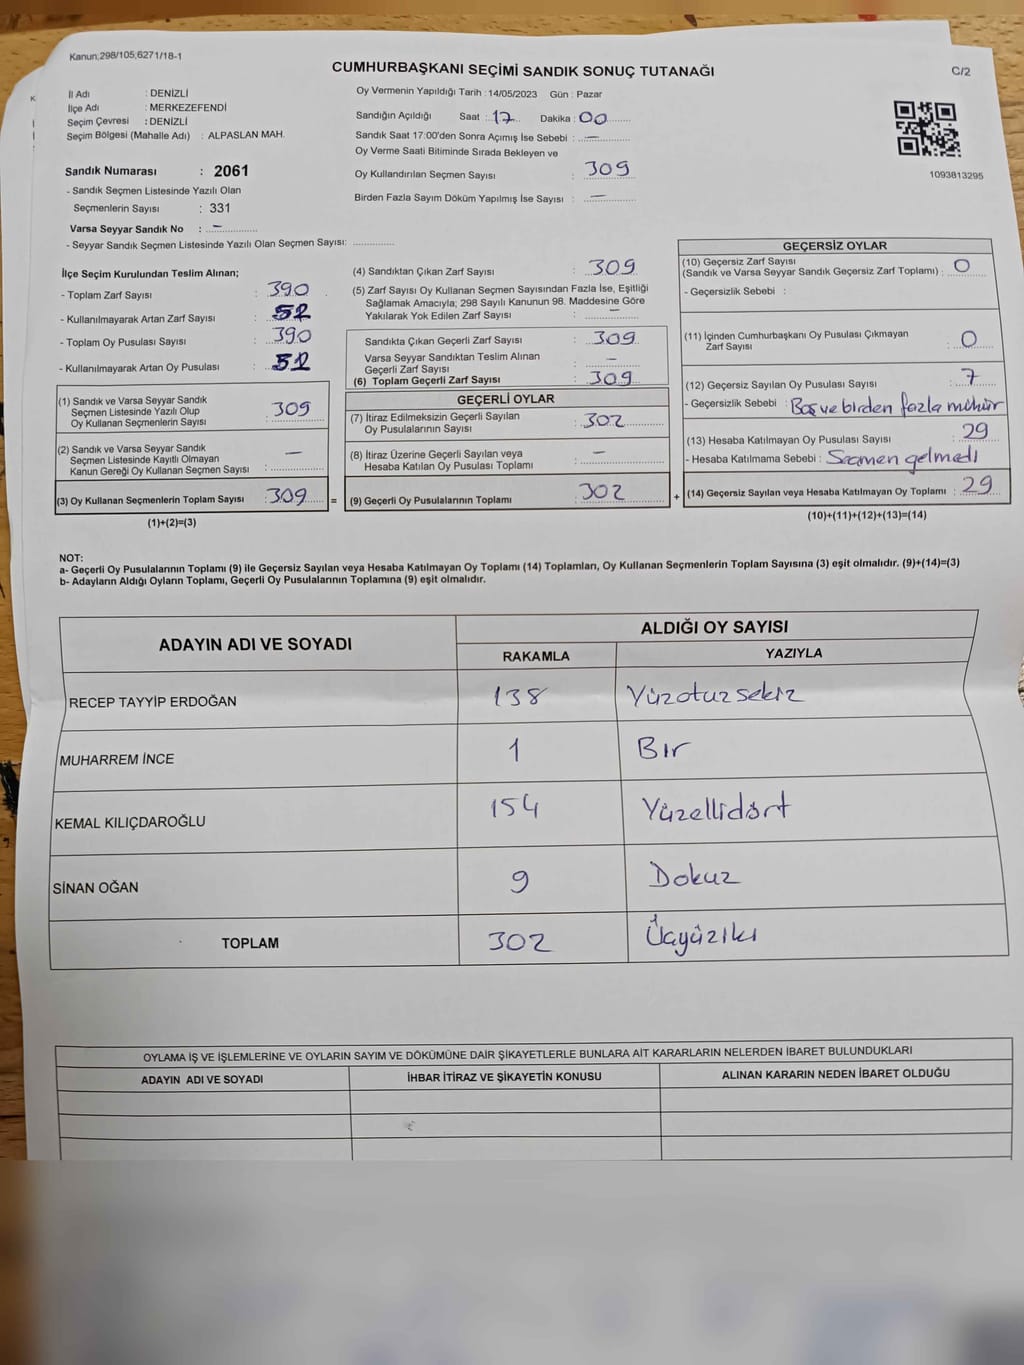 Kanun;298/105;6271/18-1
CUMHURBAŞKANI SEÇİMİ SANDIK SONUÇ TUTANAĞI
C/2
İl Adı : DENİZLİ
İlçe Adı : MERKEZEFENDİ
Seçim Çevresi : DENİZLİ
Seçim Bölgesi (Mahalle Adı) : ALPASLAN MAH.
Sandık Numarası : 2061
- Sandık Seçmen Listesinde Yazılı Olan
Seçmenlerin Sayısı : 331
Varsa Seyyar Sandık No : –
- Seyyar Sandık Seçmen Listesinde Yazılı Olan Seçmen Sayısı: ..............
Oy Vermenin Yapıldığı Tarih :14/05/2023 Gün : Pazar
Sandığın Açıldığı Saat : 17 Dakika : 00
Sandık Saat 17:00'den Sonra Açımış İse Sebebi : –
Oy Verme Saati Bitiminde Sırada Bekleyen ve
Oy Kullandırılan Seçmen Sayısı : 309
Birden Fazla Sayım Döküm Yapılmış İse Sayısı : –
1093813295
İlçe Seçim Kurulundan Teslim Alınan;
- Toplam Zarf Sayısı : 390
- Kullanılmayarak Artan Zarf Sayısı : 52
- Toplam Oy Pusulası Sayısı : 390
- Kullanılmayarak Artan Oy Pusulası : 52
(1) Sandık ve Varsa Seyyar Sandık
Seçmen Listesinde Yazılı Olup
Oy Kullanan Seçmenlerin Sayısı : 309
(2) Sandık ve Varsa Seyyar Sandık
Seçmen Listesinde Kayıtlı Olmayan
Kanun Gereği Oy Kullanan Seçmen Sayısı : –
(3) Oy Kullanan Seçmenlerin Toplam Sayısı : 309 =
(1)+(2)=(3)
(4) Sandıktan Çıkan Zarf Sayısı : 309
(5) Zarf Sayısı Oy Kullanan Seçmen Sayısından Fazla İse, Eşitliği
Sağlamak Amacıyla; 298 Sayılı Kanunun 98. Maddesine Göre
Yakılarak Yok Edilen Zarf Sayısı : –
Sandıkta Çıkan Geçerli Zarf Sayısı : 309
Varsa Seyyar Sandıktan Teslim Alınan
Geçerli Zarf Sayısı : –
(6) Toplam Geçerli Zarf Sayısı : 309
GEÇERLİ OYLAR
(7) İtiraz Edilmeksizin Geçerli Sayılan
Oy Pusulalarının Sayısı : 302
(8) İtiraz Üzerine Geçerli Sayılan veya
Hesaba Katılan Oy Pusulası Toplamı : –
(9) Geçerli Oy Pusulalarının Toplamı : 302 +
GEÇERSİZ OYLAR
(10) Geçersiz Zarf Sayısı
(Sandık ve Varsa Seyyar Sandık Geçersiz Zarf Toplamı) : 0
- Geçersizlik Sebebi :
(11) İçinden Cumhurbaşkanı Oy Pusulası Çıkmayan
Zarf Sayısı : 0
(12) Geçersiz Sayılan Oy Pusulası Sayısı : 7
- Geçersizlik Sebebi : Boş ve birden fazla mühür
(13) Hesaba Katılmayan Oy Pusulası Sayısı : 29
- Hesaba Katılmama Sebebi : Seçmen gelmedi
(14) Geçersiz Sayılan veya Hesaba Katılmayan Oy Toplamı : 29
(10)+(11)+(12)+(13)=(14)
NOT:
a- Geçerli Oy Pusulalarının Toplamı (9) ile Geçersiz Sayılan veya Hesaba Katılmayan Oy Toplamı (14) Toplamları, Oy Kullanan Seçmenlerin Toplam Sayısına (3) eşit olmalıdır. (9)+(14)=(3)
b- Adayların Aldığı Oyların Toplamı, Geçerli Oy Pusulalarının Toplamına (9) eşit olmalıdır.
ADAYIN ADI VE SOYADI
ALDIĞI OY SAYISI
RAKAMLA YAZIYLA
RECEP TAYYİP ERDOĞAN 138 Yüzotuzsekiz
MUHARREM İNCE 1 Bir
KEMAL KILIÇDAROĞLU 154 Yüzellidört
SİNAN OĞAN 9 Dokuz
TOPLAM 302 Üçyüziki
OYLAMA İŞ VE İŞLEMLERİNE VE OYLARIN SAYIM VE DÖKÜMÜNE DAİR ŞİKAYETLERLE BUNLARA AİT KARARLARIN NELERDEN İBARET BULUNDUKLARI
ADAYIN ADI VE SOYADI İHBAR İTİRAZ VE ŞİKAYETİN KONUSU ALINAN KARARIN NEDEN İBARET OLDUĞU